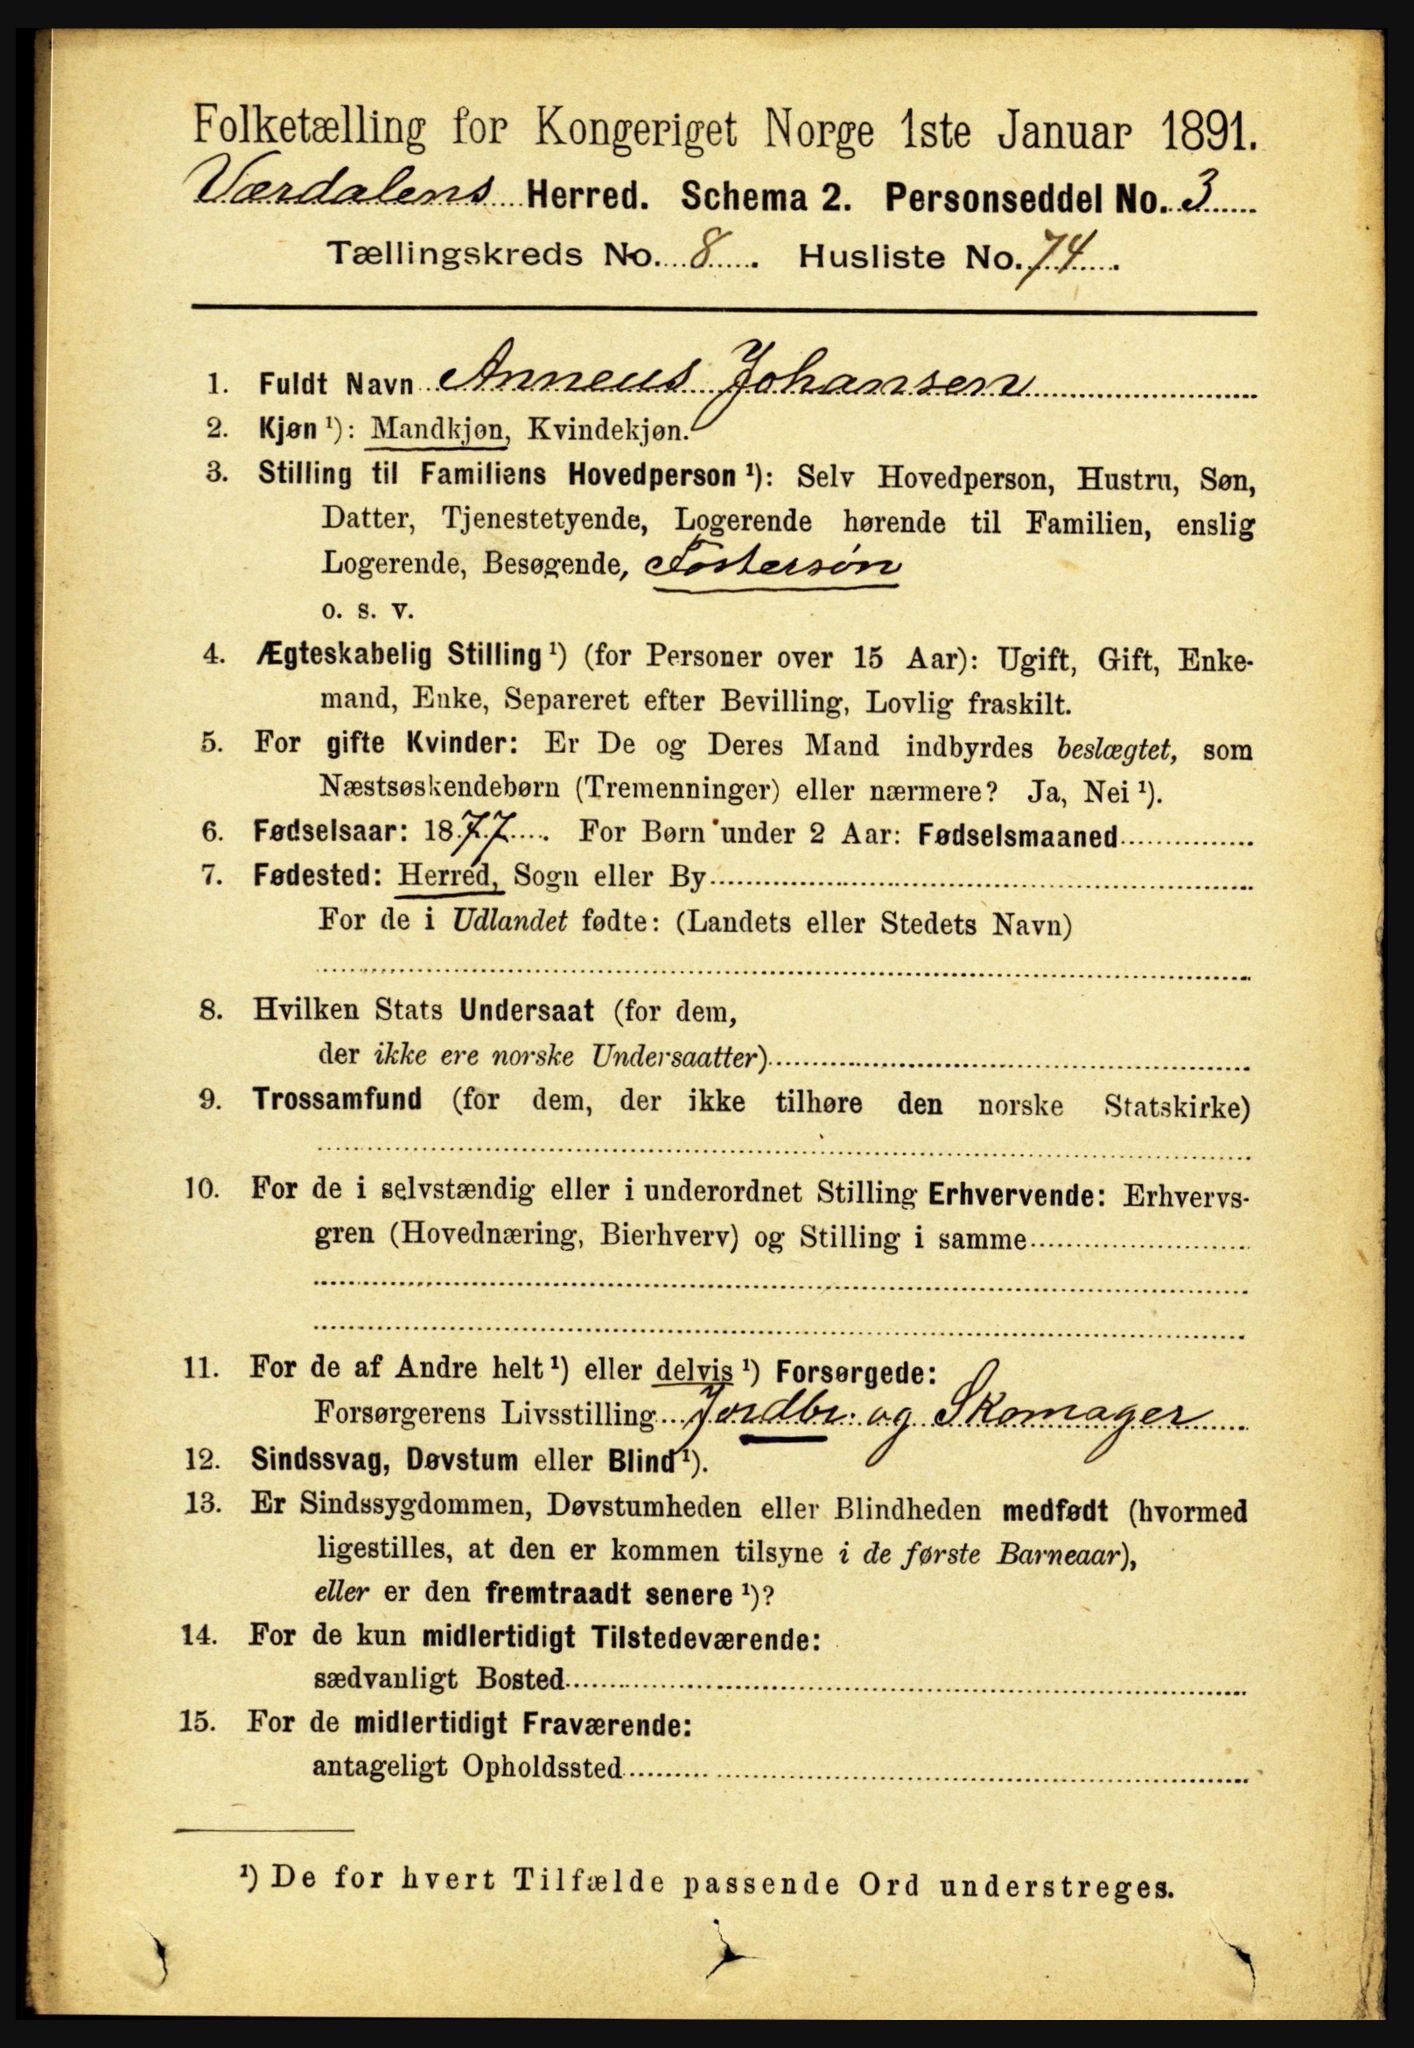 Folketælling for Kongeriget Norge 1ste Januar 1891.
Værdalens Herred. Schema 2. Personseddel No. 3
Tællingskreds No. 8. Husliste No. 74.
1. Fuldt Navn Anneus Johansen
2. Kjøn ¹): Mandkjøn, Kvindekjøn.
3. Stilling til Familiens Hovedperson ¹): Selv Hovedperson, Hustru, Søn,
Datter, Tjenestetyende, Logerende hørende til Familien, enslig
Logerende, Besøgende, Fostersøn
o. s. v.
4. Ægteskabelig Stilling ¹) (for Personer over 15 Aar): Ugift, Gift, Enke-
mand, Enke, Separeret efter Bevilling, Lovlig fraskilt.
5. For gifte Kvinder: Er De og Deres Mand indbyrdes beslægtet, som
Næstsøskendebørn (Tremenninger) eller nærmere? Ja, Nei ¹).
6. Fødselsaar: 1877. For Børn under 2 Aar: Fødselsmaaned
7. Fødested: Herred, Sogn eller By
For de i Udlandet fødte: (Landets eller Stedets Navn)
8. Hvilken Stats Undersaat (for dem,
der ikke ere norske Undersaatter)
9. Trossamfund (for dem, der ikke tilhøre den norske Statskirke)
10. For de i selvstændig eller i underordnet Stilling Erhvervende: Erhvervs-
gren (Hovednæring, Bierhverv) og Stilling i samme
11. For de af Andre helt ¹) eller delvis ¹) Forsørgede:
Forsørgerens Livsstilling Jordbr. og Skomager
12. Sindssvag, Døvstum eller Blind ¹).
13. Er Sindssygdommen, Døvstumheden eller Blindheden medfødt (hvormed
ligestilles, at den er kommen tilsyne i de første Barneaar),
eller er den fremtraadt senere ¹)?
14. For de kun midlertidigt Tilstedeværende:
sædvanligt Bosted
15. For de midlertidigt Fraværende:
antageligt Opholdssted
¹) De for hvert Tilfælde passende Ord understreges.